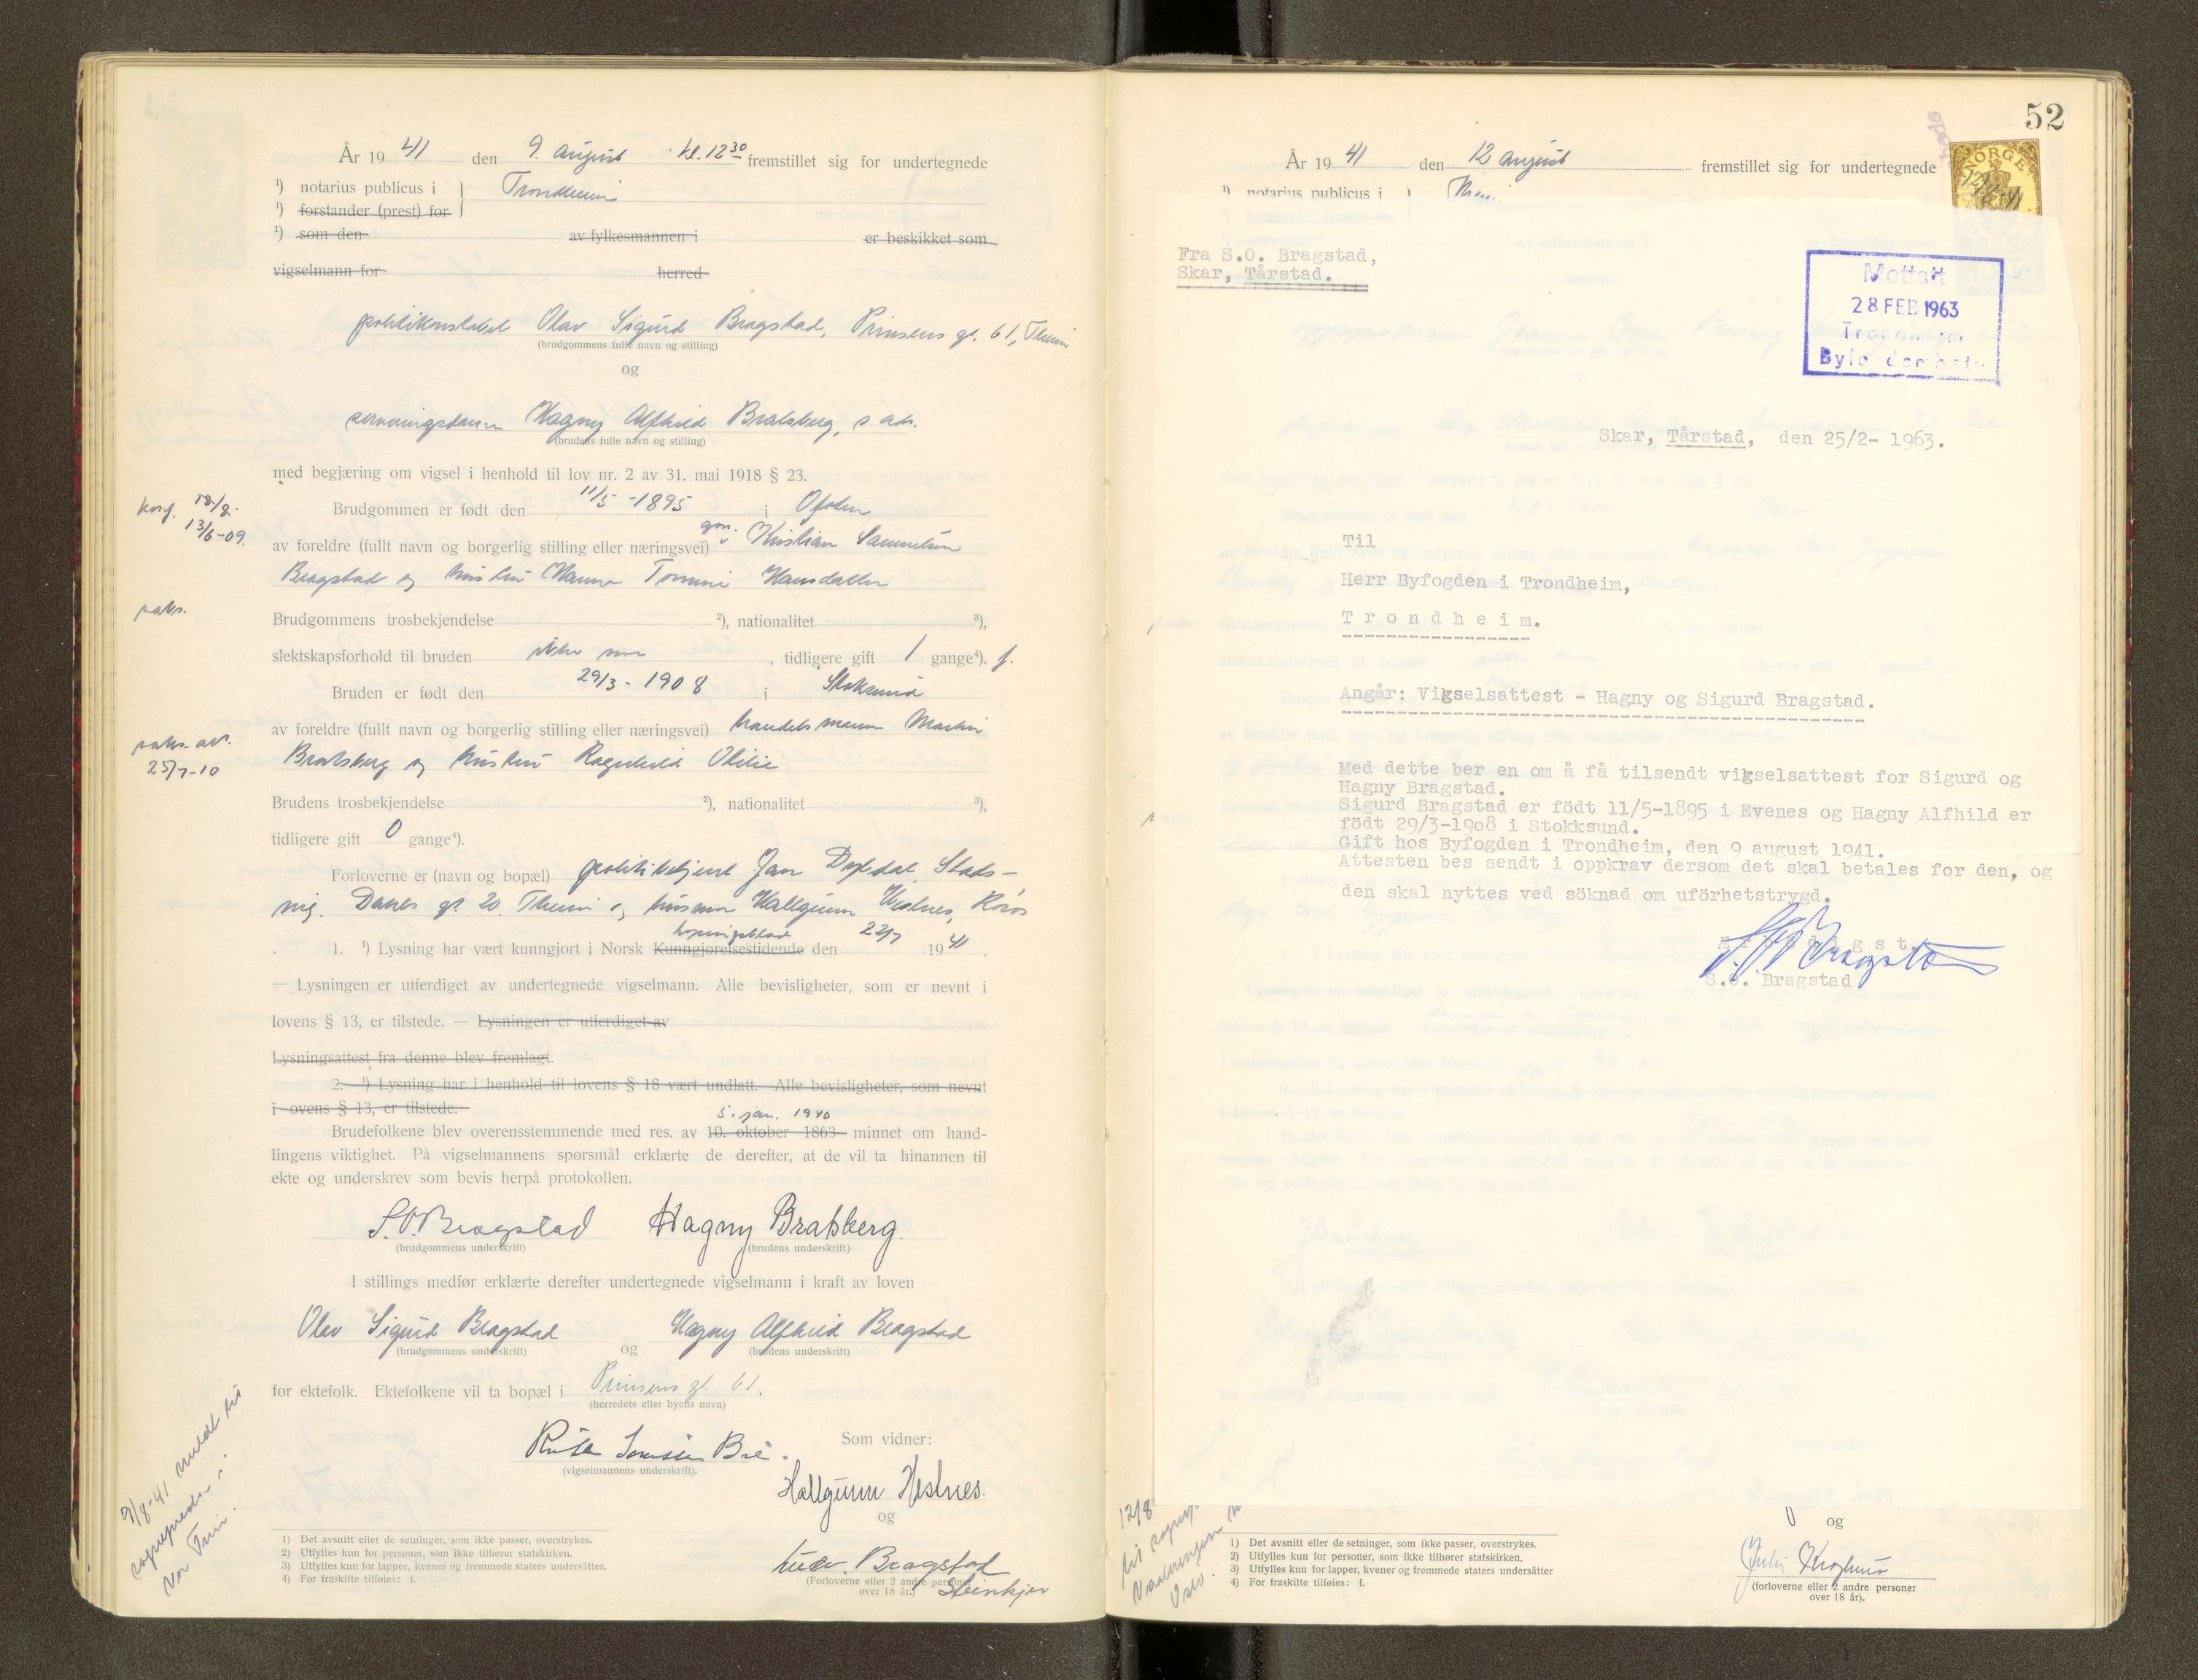 År 19 41 den 9. august kl. 12 30 fremstillet sig for undertegnede
¹) notarius publicus i } Trondheim
¹) forstander (prest) for
¹) som den av fylkesmannen i er beskikket som
vigselmann for herred
politikonstabel Olav Sigurd Bragstad, Prinsens gt. 61, Theim
(brudgommens fulle navn og stilling)
og
Hagny Alfhild Bratsberg, s. adr.
(brudens fulle navn og stilling)
med begjæring om vigsel i henhold til lov nr. 2 av 31. mai 1918 § 23.
konf. 18/8. Brudgommen er født den 11/5 - 1895 i Ofoten
13/6-09.
av foreldre (fullt navn og borgerlig stilling eller næringsvei) Kristian
Bragstad og hustru Hansdatter
Brudgommens trosbekjendelse ²), nationalitet ³),
slektskapsforhold til bruden , tidligere gift 1 gange⁴). f.
Bruden er født den 29/3 - 1908 i Stoksund
av foreldre (fullt navn og borgerlig stilling eller næringsvei) handelsmann Martin
Bratsberg og hustru Ragnhild Otilie
25/7-10
Brudens trosbekjendelse ²), nationalitet ³),
tidligere gift 0 gange⁴).
Forloverne er (navn og bopæl) politibetjent Jan
gt. 20. Theim og Hallgunn Hestnes, Røros
1. ¹) Lysning har vært kunngjort i Norsk Kunngjørelsestidende lysningsblad den 22/7 1941.
— Lysningen er utferdiget av undertegnede vigselmann. Alle bevisligheter, som er nevnt i
lovens § 13, er tilstede. — Lysningen er utferdiget av
Lysningsattest fra denne blev fremlagt.
2. ¹) Lysning har i henhold til lovens § 18 vært undlatt. Alle bevisligheter, som nevnt
i ovens § 13, er tilstede.
5. jan. 1940
Brudefolkene blev overensstemmende med res. av 10. oktober 1863 minnet om hand-
lingens viktighet. På vigselmannens spørsmål erklærte de derefter, at de vil ta hinannen til
ekte og underskrev som bevis herpå protokollen.
S.O. Bragstad Hagny Bratsberg.
(brudgommens underskrift) (brudens underskrift)
I stillings medfør erklærte derefter undertegnede vigselmann i kraft av loven
Olav Sigurd Bragstad og Hagny Alfhild Bragstad
(brudgommens underskrift) (brudens underskrift)
for ektefolk. Ektefolkene vil ta bopæl i Prinsens gt. 61.
(herredets eller byens navn)
(vigselmannens underskrift).
Som vidner:
Hallgunn Hestnes.
og
Bragstad
Steinkjer
(Forloverne eller 2 andre personer
over 18 år.)
9/8-41 meldt til
sognepresten i
Vor Frue.
1) Det avsnitt eller de setninger, som ikke passer, overstrykes.
2) Utfylles kun for personer, som ikke tilhører statskirken.
3) Utfylles kun for lapper, kvener og fremmede staters undersåtter.
4) For fraskilte tilføies: f.
52
År 19 41 den 12 august fremstillet sig for undertegnede
¹) notarius publicus i
NORGE
12/8-41
Fra S.O. Bragstad,
Skar, Tårstad.
Mottatt
28 FEB 1963
Trondheim
Skar, Tårstad, den 25/2- 1963.
Til
Herr Byfogden i Trondheim,
Trondheim.
Angår: Vigselsattest - Hagny og Sigurd Bragstad.
Med dette ber en om å få tilsendt vigselsattest for Sigurd og
Hagny Bragstad.
Sigurd Bragstad er födt 11/5-1895 i Evenes og Hagny Alfhild er
födt 29/3-1908 i Stokksund.
Gift hos Byfogden i Trondheim, den 9 august 1941.
Attesten bes sendt i oppkrav dersom det skal betales for den, og
den skal nyttes ved söknad om uförhetstrygd.
Ærbødigst.
S.O. Bragstad
S.O. Bragstad
12/8
Oslo.
1) Det avsnitt eller de setninger, som ikke passer, overstrykes.
2) Utfylles kun for personer, som ikke tilhører statskirken.
3) Utfylles kun for lapper, kvener og fremmede staters undersåtter
4) For fraskilte tilføies: f.
og
(forloverne eller 2 andre personer
over 18 år).